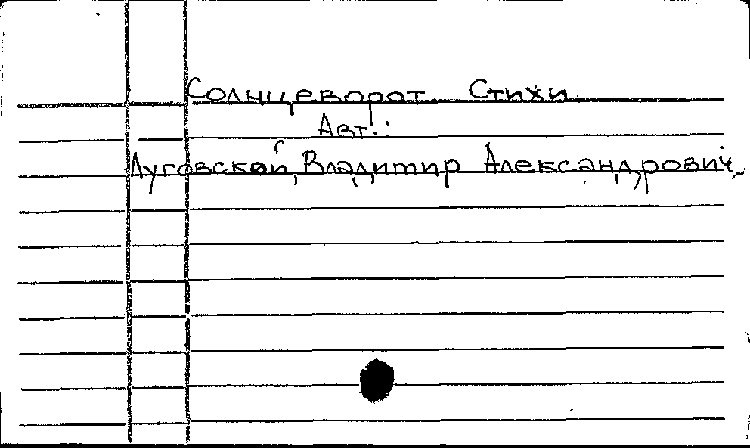 Солнцеворот. Стихи
Авт.:
Луговской, Владимир Александрович.